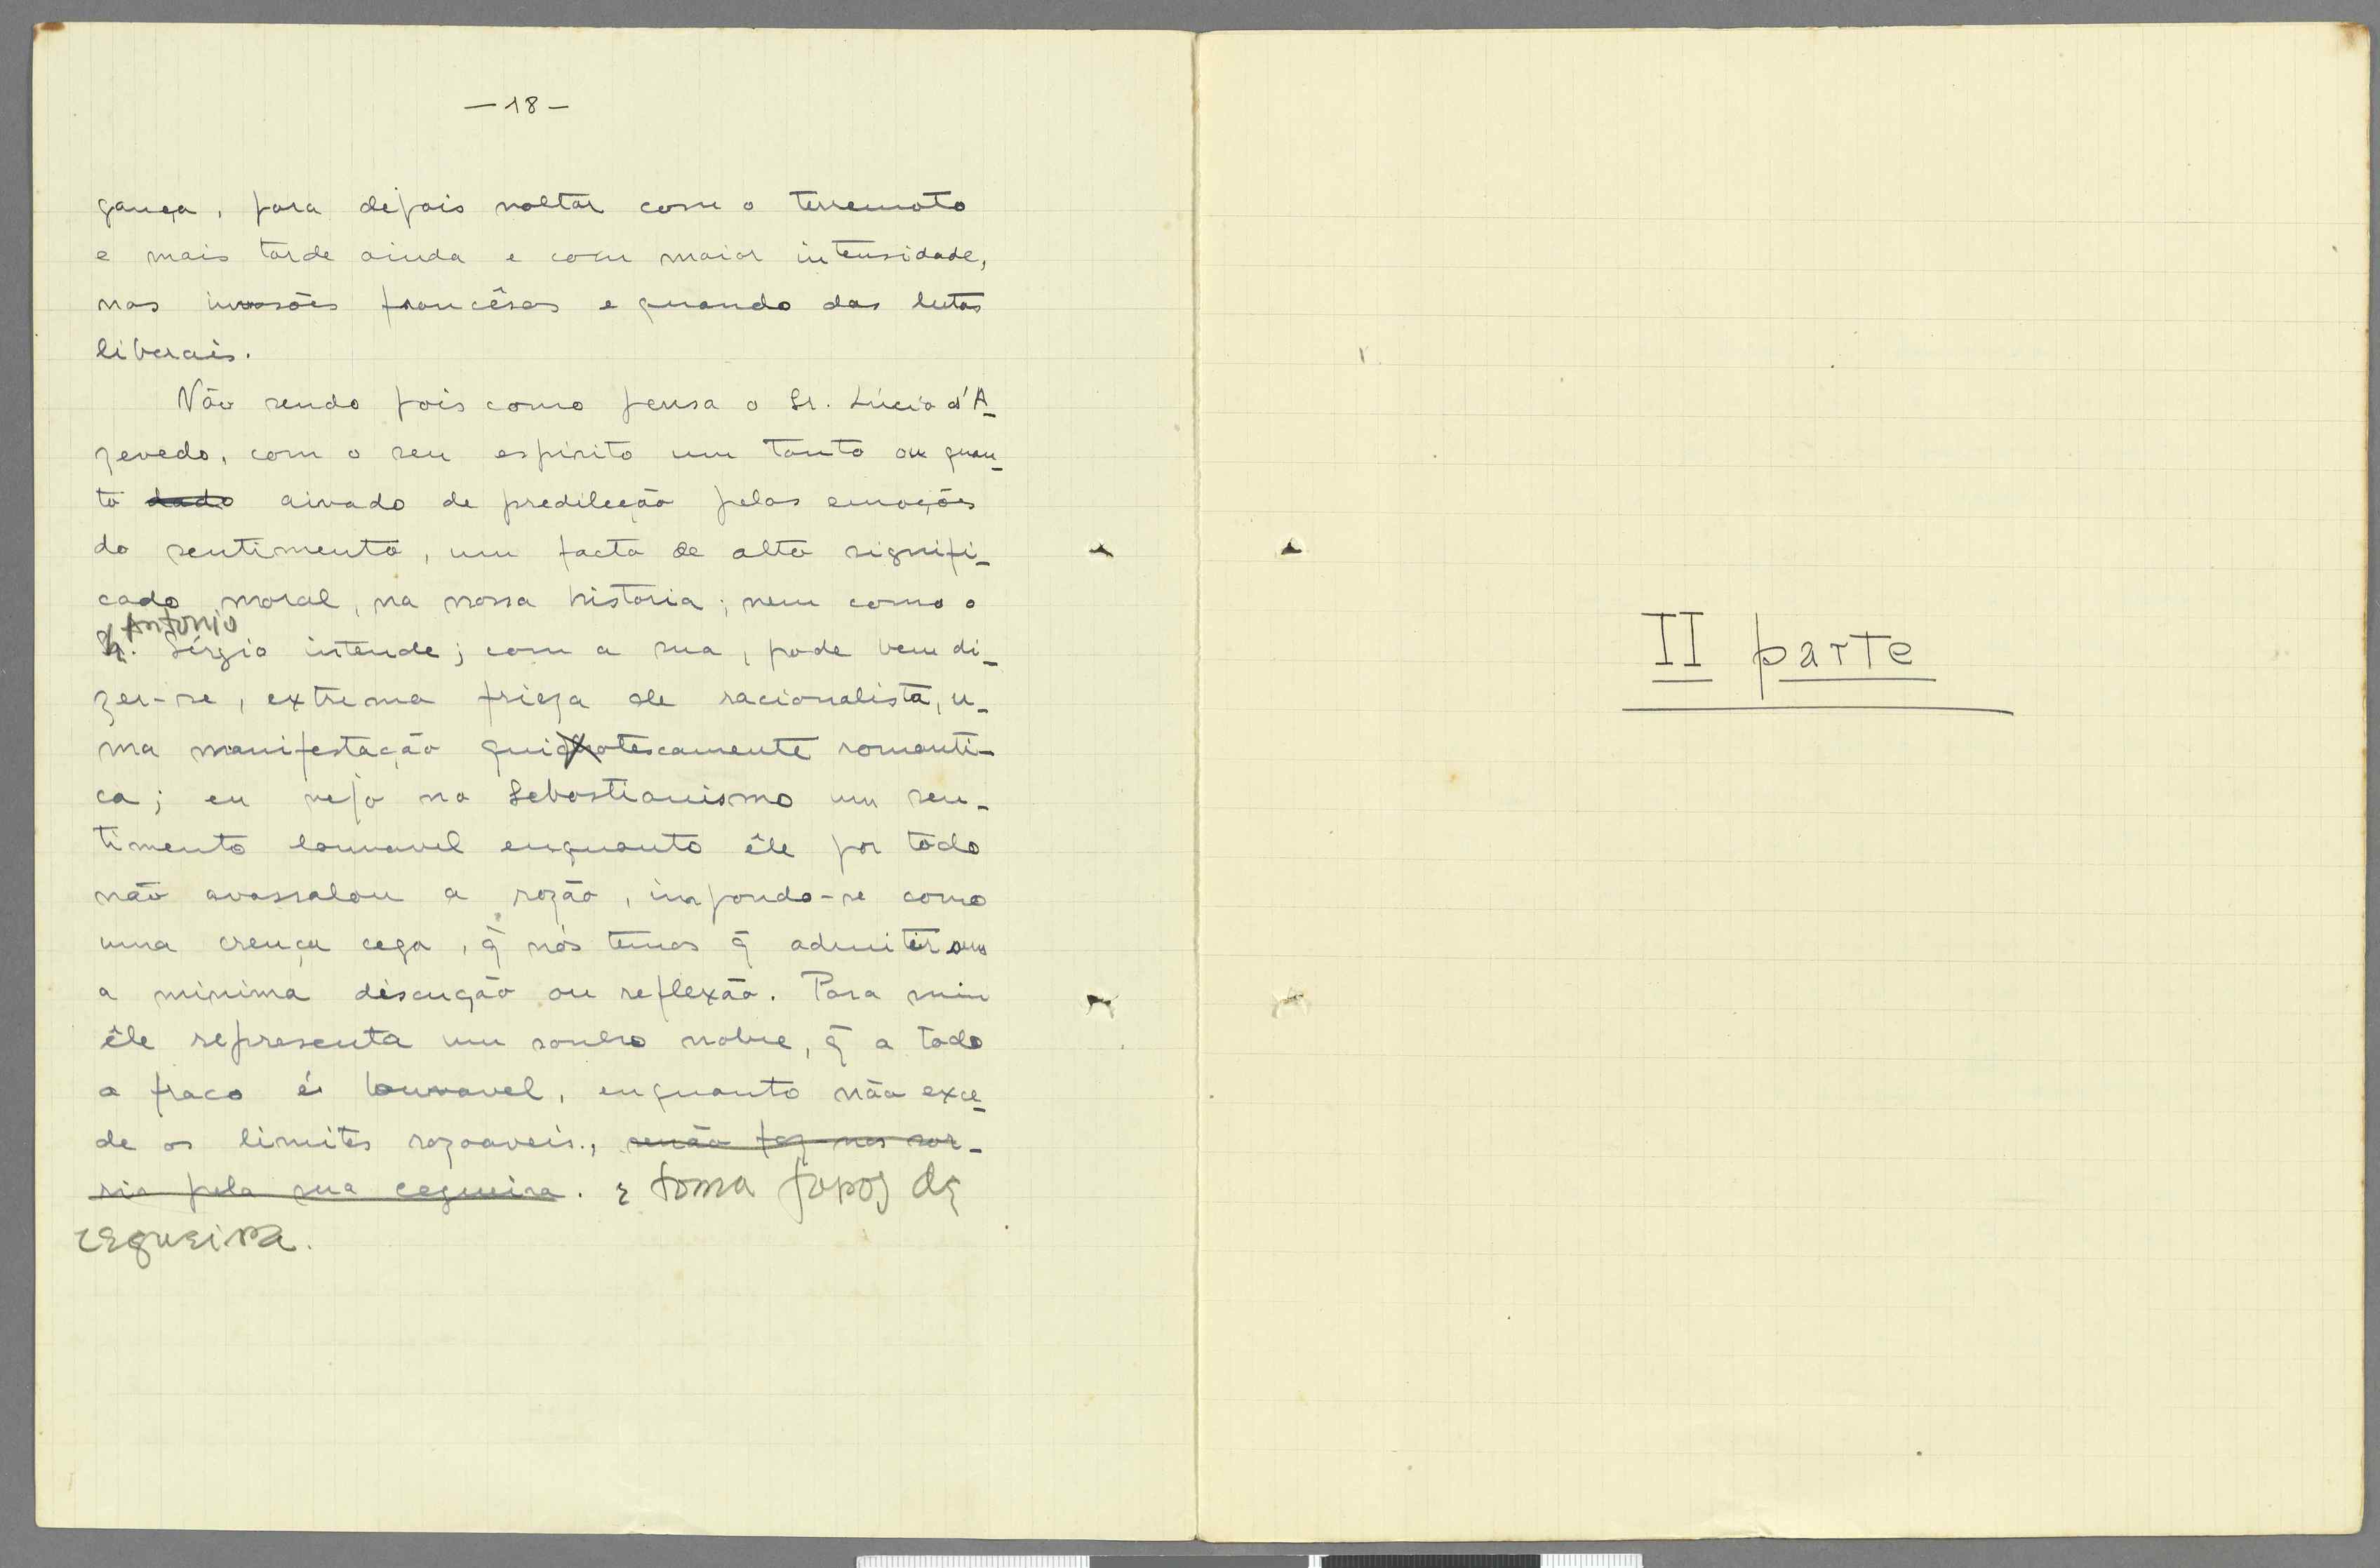 — 18 —
gança, para depois voltar com o terremoto
e mais tarde ainda e com maior intensidade,
nas invasões francêsas e quando das lutas
liberais.
Não sendo pois como pensa o Sr. Lúcio d'A-
zevedo, com o seu espirito um tanto ou quan-
to dado aivado de predilecção pelas emoções
do sentimento, um facto de alto signifi-
cado moral, na nossa historia; nem como o
Antonio
Sr. Sérgio intende; com a sua, pode bem di-
zer-se, extrema frieza de racionalista, u-
ma manifestação quixotescamente romanti-
ca; eu vejo no Sebastianismo um sen-
timento louvavel enquanto êle por todo
não avassalou a razão, impondo-se como
uma crença cega, q̃ nós temos q̃ admitir sem
a minima discução ou reflexão. Para mim
êle representa um sonho nobre, q̃ a todo
o fraco é louvavel, enquanto não exce-
de os limites razoaveis., senão faz-nos sor-
rir pela sua cegueira. e toma foros de
cegueira.
II parte